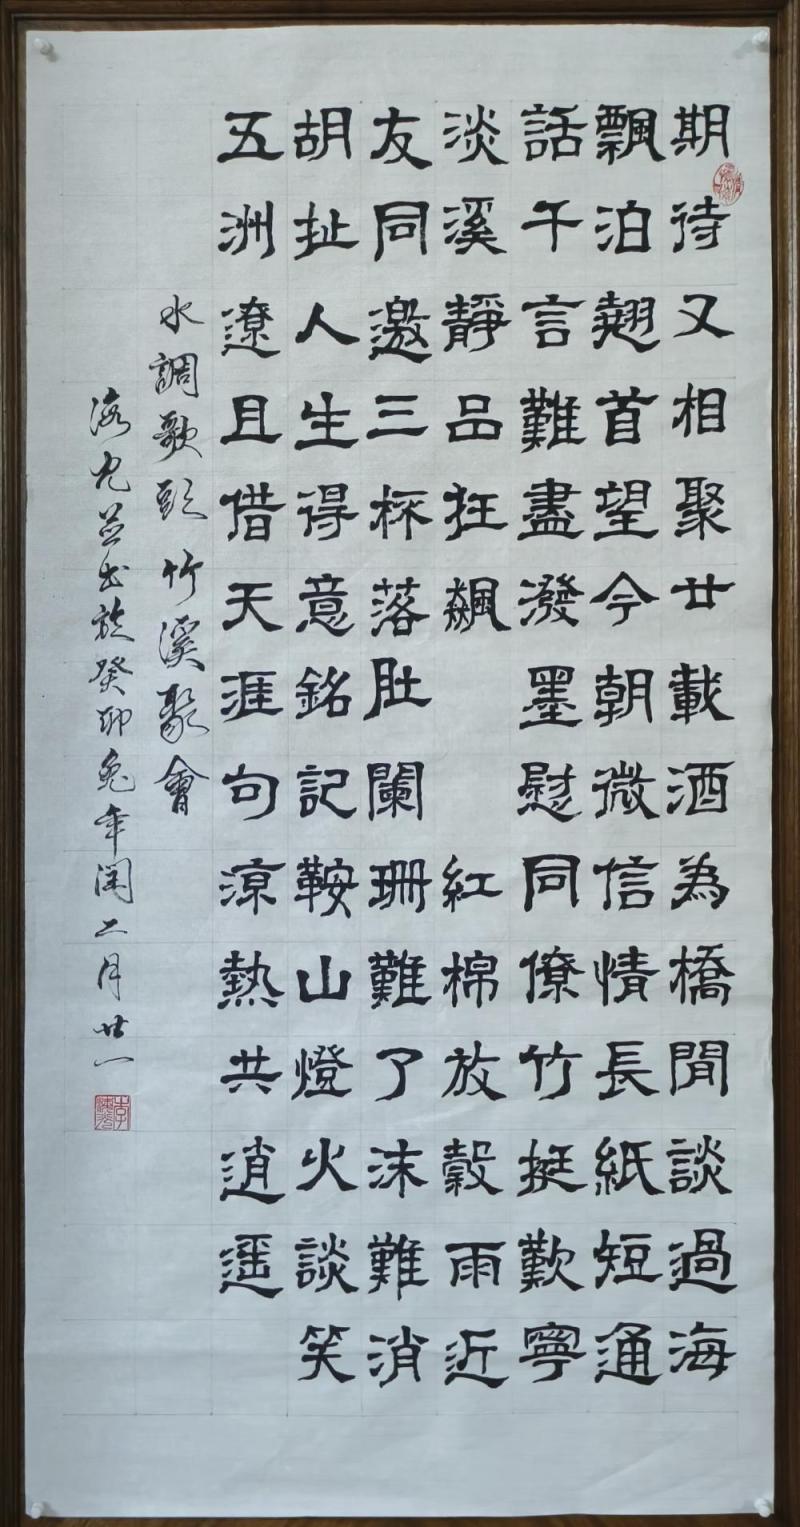 期待又相聚廿載酒為橋閒談過海
飄泊翹首望今朝微信情長紙短通
話千言難盡潑墨慰同僚竹挺歎寧
淡溪靜品狂飆 紅棉放穀雨近
友同邀三杯落肚闌珊難了沫難消
胡扯人生得意銘記鞍山燈火談笑
五洲遼且借天涯句涼熱共逍遥
水調歌頭 竹溪聚會
並书於癸卯兔年閏二月廿一